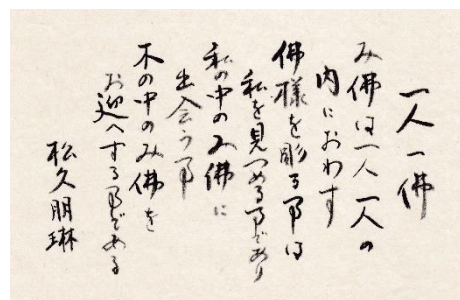 一人一佛
み佛は一人一人の
内におわす
佛様を彫る事は
私を見つめる事であり
私の中のみ佛に
出会う事
木の中のみ佛を
お迎へする事である
松久朋琳